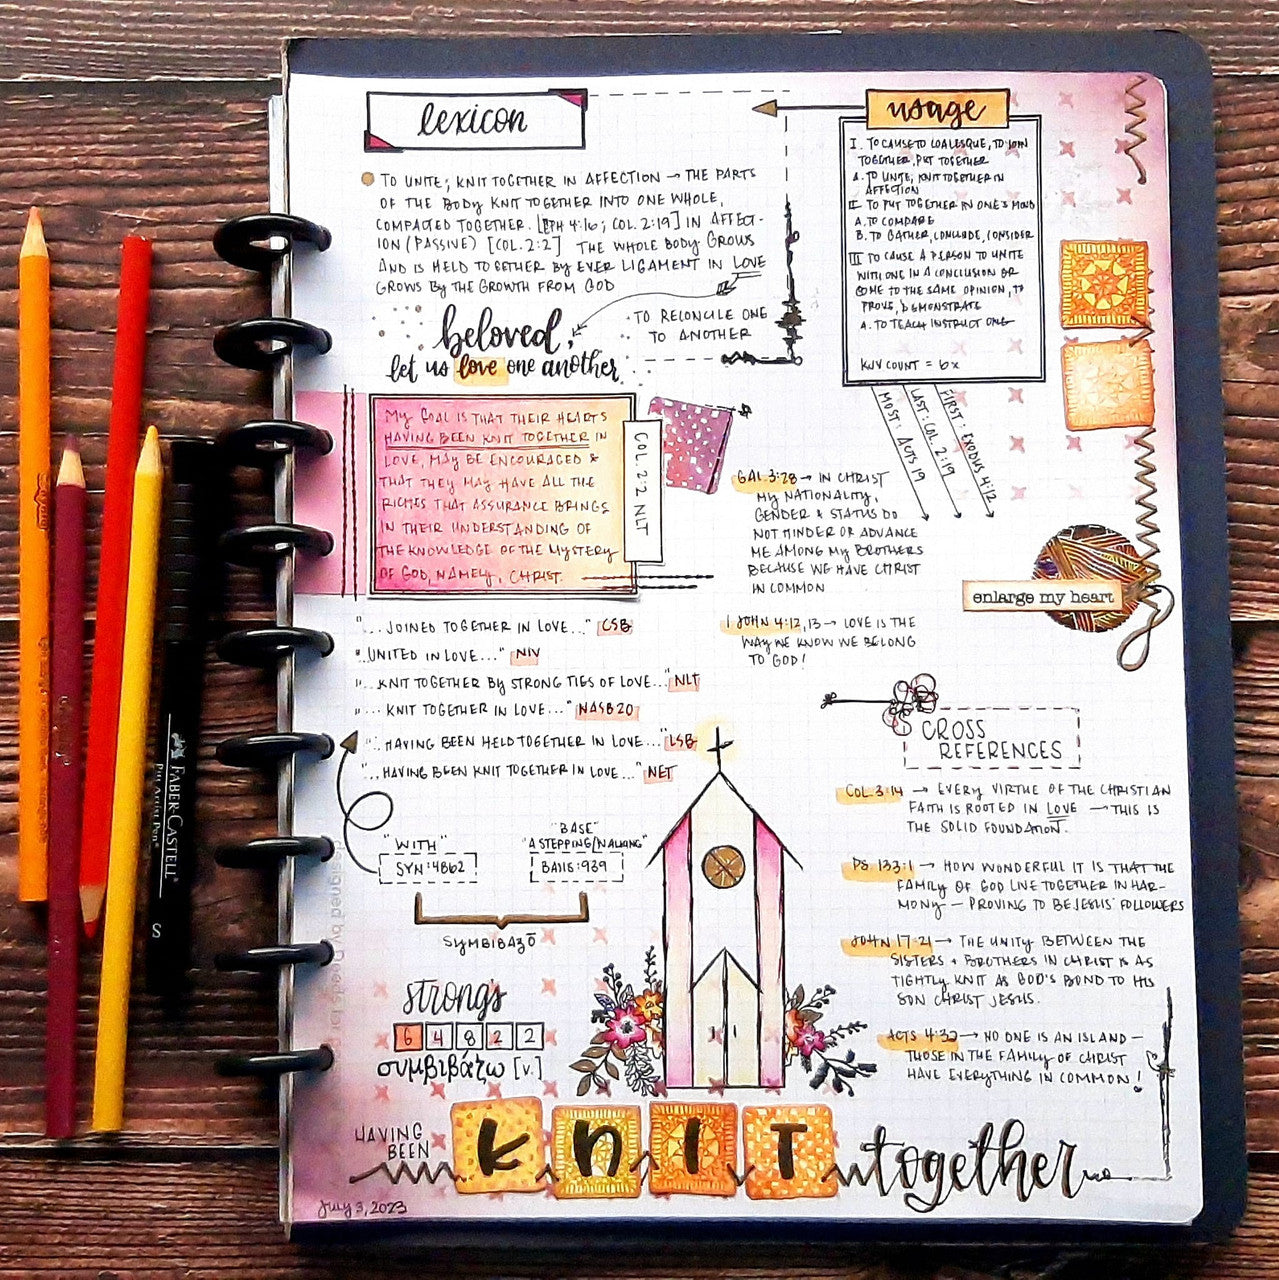 lexicon
TO UNITE; KNIT TOGETHER IN AFFECTION → THE PARTS
OF THE BODY KNIT TOGETHER INTO ONE WHOLE,
COMPACTED TOGETHER. [EPH 4:16; COL. 2:19] IN AFFECT-
ION (PASSIVE) [COL. 2:2] THE WHOLE BODY GROWS
AND IS HELD TOGETHER BY EVER LIGAMENT IN LOVE
GROWS BY THE GROWTH FROM GOD
TO RECONCILE ONE
TO ANOTHER
beloved,
let us love one another
usage
I. TO CAUSE TO COALESQUE, TO JOIN
TOGETHER, PUT TOGETHER
A. TO UNITE, KNIT TOGETHER IN
AFFECTION
II TO PUT TOGETHER IN ONE'S MIND
A. TO COMPARE
B. TO GATHER, CONCLUDE, CONSIDER
III TO CAUSE A PERSON TO UNITE
WITH ONE IN A CONCLUSION OR
COME TO THE SAME OPINION, TO
PROVE, DEMONSTRATE
A. TO TEACH INSTRUCT ONE
KJV COUNT = 6x
MOST: ACTS 19
LAST: COL. 2:19
FIRST: EXODUS 4:12
MY GOAL IS THAT THEIR HEARTS
HAVING BEEN KNIT TOGETHER IN
LOVE, MAY BE ENCOURAGED &
THAT THEY MAY HAVE ALL THE
RICHES THAT ASSURANCE BRINGS
IN THEIR UNDERSTANDING OF
THE KNOWLEDGE OF THE MYSTERY
OF GOD, NAMELY, CHRIST.
COL. 2:2 NLT
GAL 3:28 → IN CHRIST
MY NATIONALITY,
GENDER & STATUS DO
NOT HINDER OR ADVANCE
ME AMONG MY BROTHERS
BECAUSE WE HAVE CHRIST
IN COMMON
enlarge my heart
1 JOHN 4:12,13 → LOVE IS THE
WAY WE KNOW WE BELONG
TO GOD!
"... JOINED TOGETHER IN LOVE..." CSB
"..UNITED IN LOVE..." NIV
"... KNIT TOGETHER BY STRONG TIES OF LOVE..." NLT
"... KNIT TOGETHER IN LOVE..." NASB20
"... HAVING BEEN HELD TOGETHER IN LOVE..." LSB
"... HAVING BEEN KNIT TOGETHER IN LOVE..." NET
"WITH"
SYN: 4862
"BASE"
"A STEPPING/WALKING"
BAIIS: 939
SYMBIBAZŌ
strongs
6 4 8 2 2
συμβιβάζω [v.]
CROSS
REFERENCES
COL. 3:14 → EVERY VIRTUE OF THE CHRISTIAN
FAITH IS ROOTED IN LOVE → THIS IS
THE SOLID FOUNDATION.
PS 133:1 → HOW WONDERFUL IT IS THAT THE
FAMILY OF GOD LIVE TOGETHER IN HAR-
MONY — PROVING TO BE JESUS' FOLLOWERS
JOHN 17:21 → THE UNITY BETWEEN THE
SISTERS + BROTHERS IN CHRIST IS AS
TIGHTLY KNIT AS GOD'S BOND TO HIS
SON CHRIST JESUS.
ACTS 4:32 → NO ONE IS AN ISLAND —
THOSE IN THE FAMILY OF CHRIST
HAVE EVERYTHING IN COMMON!
HAVING
BEEN
KNIT together
July 3, 2023
FABER-CASTELL
Pitt Artist Pen
S